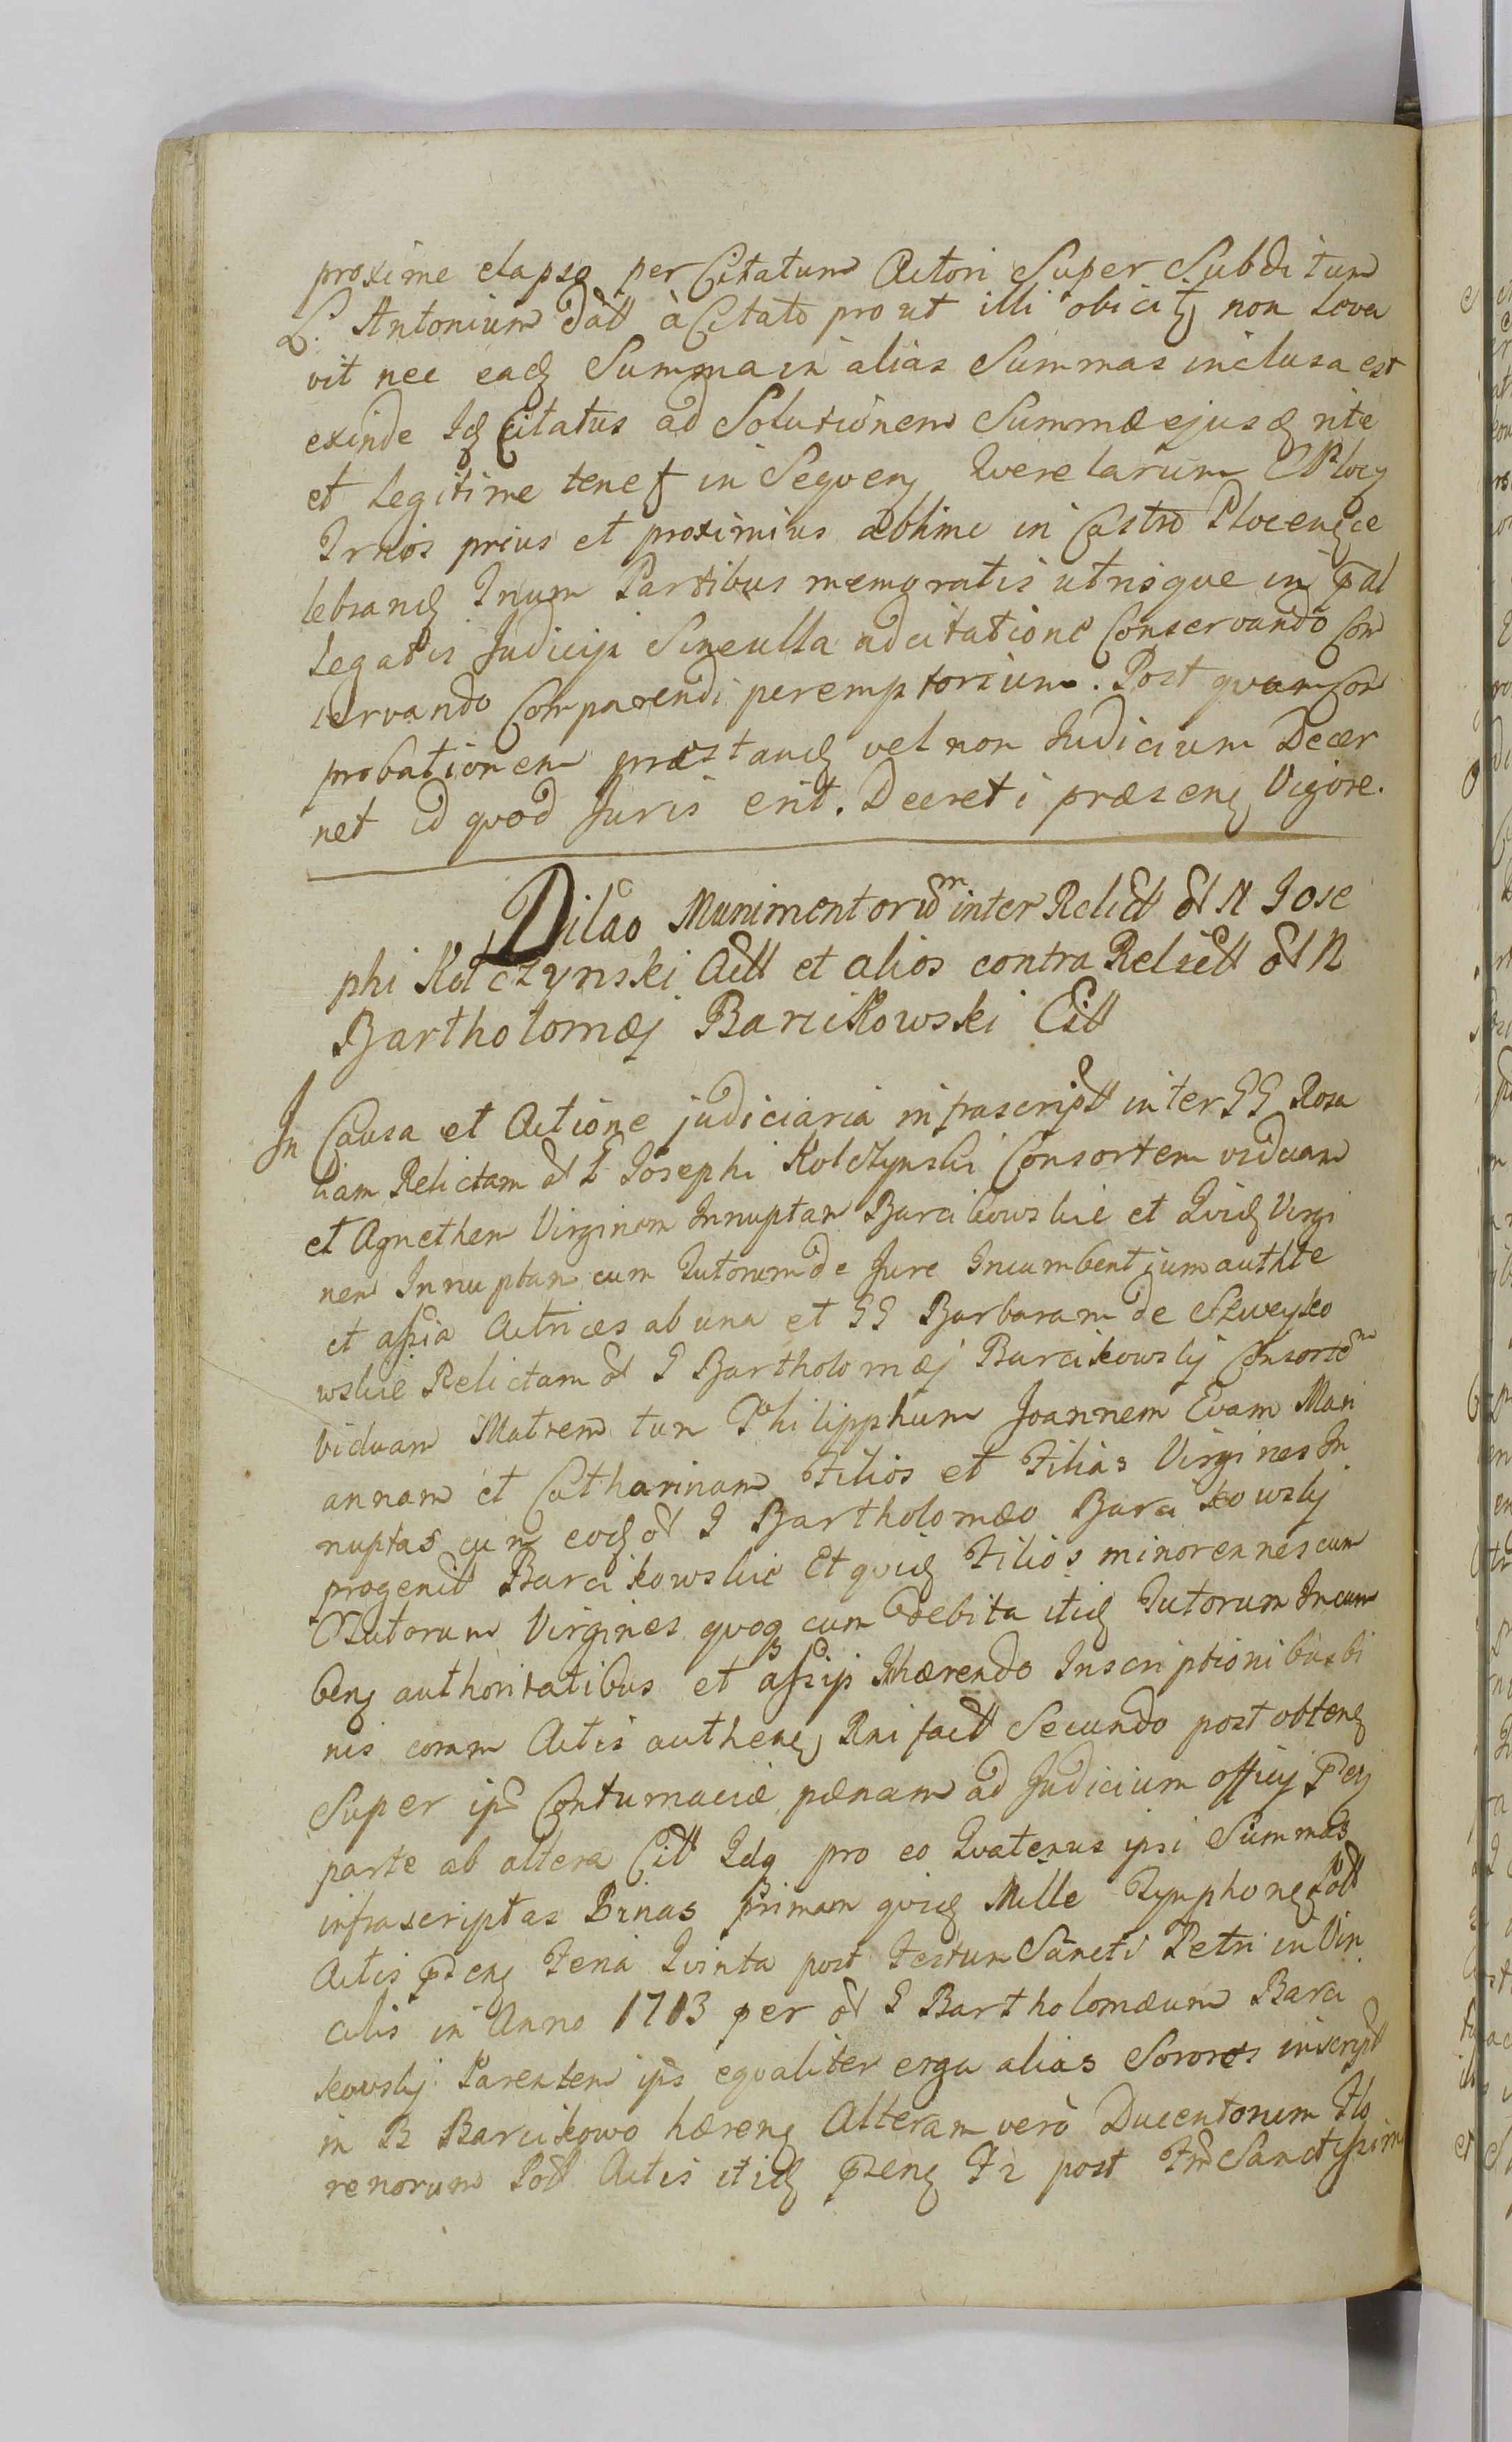 proxime elapso per Citatum Actori Super Subditum
L. Antonium datt à Citato prout illi obicitq non leva
vit nec eadq Summa in alias Summas inclusa est
exinde Idq Citatus ad Solutionem Summæ ejusdq rite
et legitime tenetq in Sequenq Querelarum Plocq
Trnos prius et proximius abhinc in Castro Plocenq ce
lebrandq Trnum Partibus memoratis utrisque in p̄al
legatis Judicijs Sineulla adcitatione Conservando Con
servando Comparendi peremptorium. Post quam Com
probationem præstandq vel non Judicium Decer
net id quod Juris erit. Decreti præsenq Vigore.
Dilao Munimentorum inter Relictt ol N Jose
phi Kolczynski Actt et alios contra Relictt ol N
Bartholomæj Barcikowski Citt
In Causa et Actione judiciaria infrascriptt inter GG Rosa
liam Relictam ol G Josephi Kolczynski Consortem viduam
et Agnethem Virginem Innuptam Barcikowskie et Quidq Virgi
nem Innuptam cum Tutorum de Jure Incumbentium authte
et assia Actrices ab una et GG Barbaram de Szweyko
wskie Relictam ol G Bartholomæj Barcikowskj Consortem
viduam Matrem tum Philipphum Joannem Evam Mari
annam et Catharinam Filios et Filias Virgines In
nuptas cum eodq ol G Bartholomæo Barcikowskj
progenitt Barcikowskie Et quidq Filios minorennes cum
Tutorum Virgines quoq cum debita itidq Tutorum Incum
benq authoritatibus et assijs Inhærendo Inscriptionibus bi
nis coram Actis authenq Rni factt Secundo post obtenq
Super ips Contumaciæ pænam ad Judicium officij p̄senq
parte ab altera Citt Idq pro eo Quatenus ipsi Summas
infrascriptas Binas primam quidq Mille Tymphonq Poll
Actis p̄senq Feria Quinta post Festum Sancti Petri in Vin
culis in Anno 1713 per ol G Bartholomæum Barci
kowskj Parentem ips equaliter erga alias Sorores inscriptt
in B Barcikowo hærenq Alteram verò Ducentorum Flo
renorum Poll Actis itidq p̄senq Fr 2 post Ftm Sanctissimi